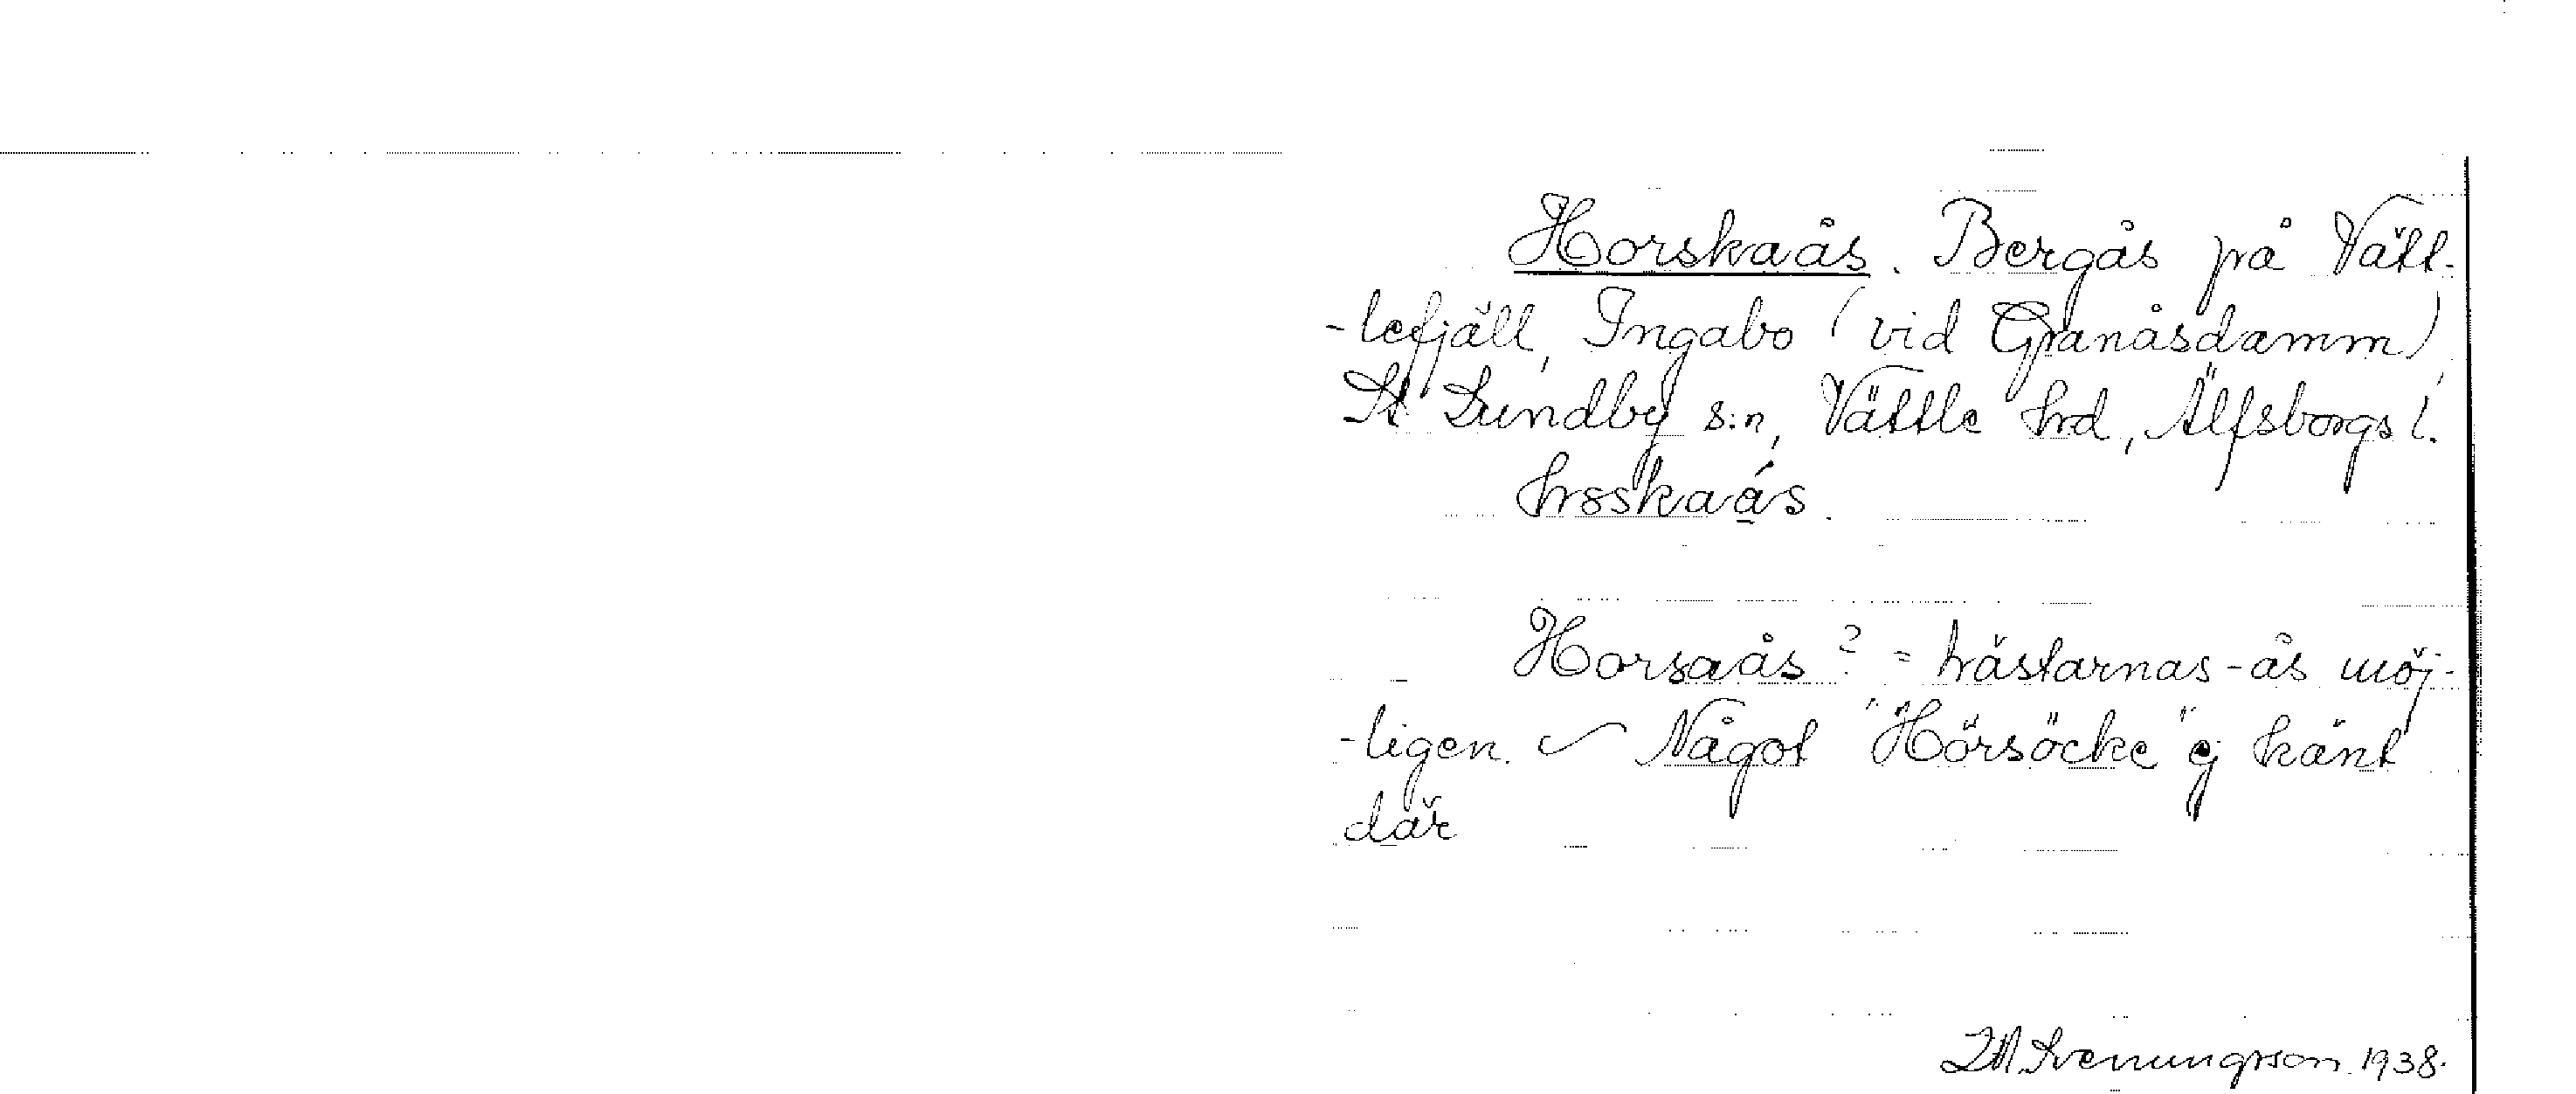 Horskaås. Bergås på Vätt-
-lefjäll, Ingabo (vid Granåsdamm)
St Lundby s:n, Vättle hrd, Älfsborgs l.
Horsaås? = hästarnas-ås möj-
-ligen. ~ Något "Hörsöcke" ej känt
där
Svenungsson. 1938.